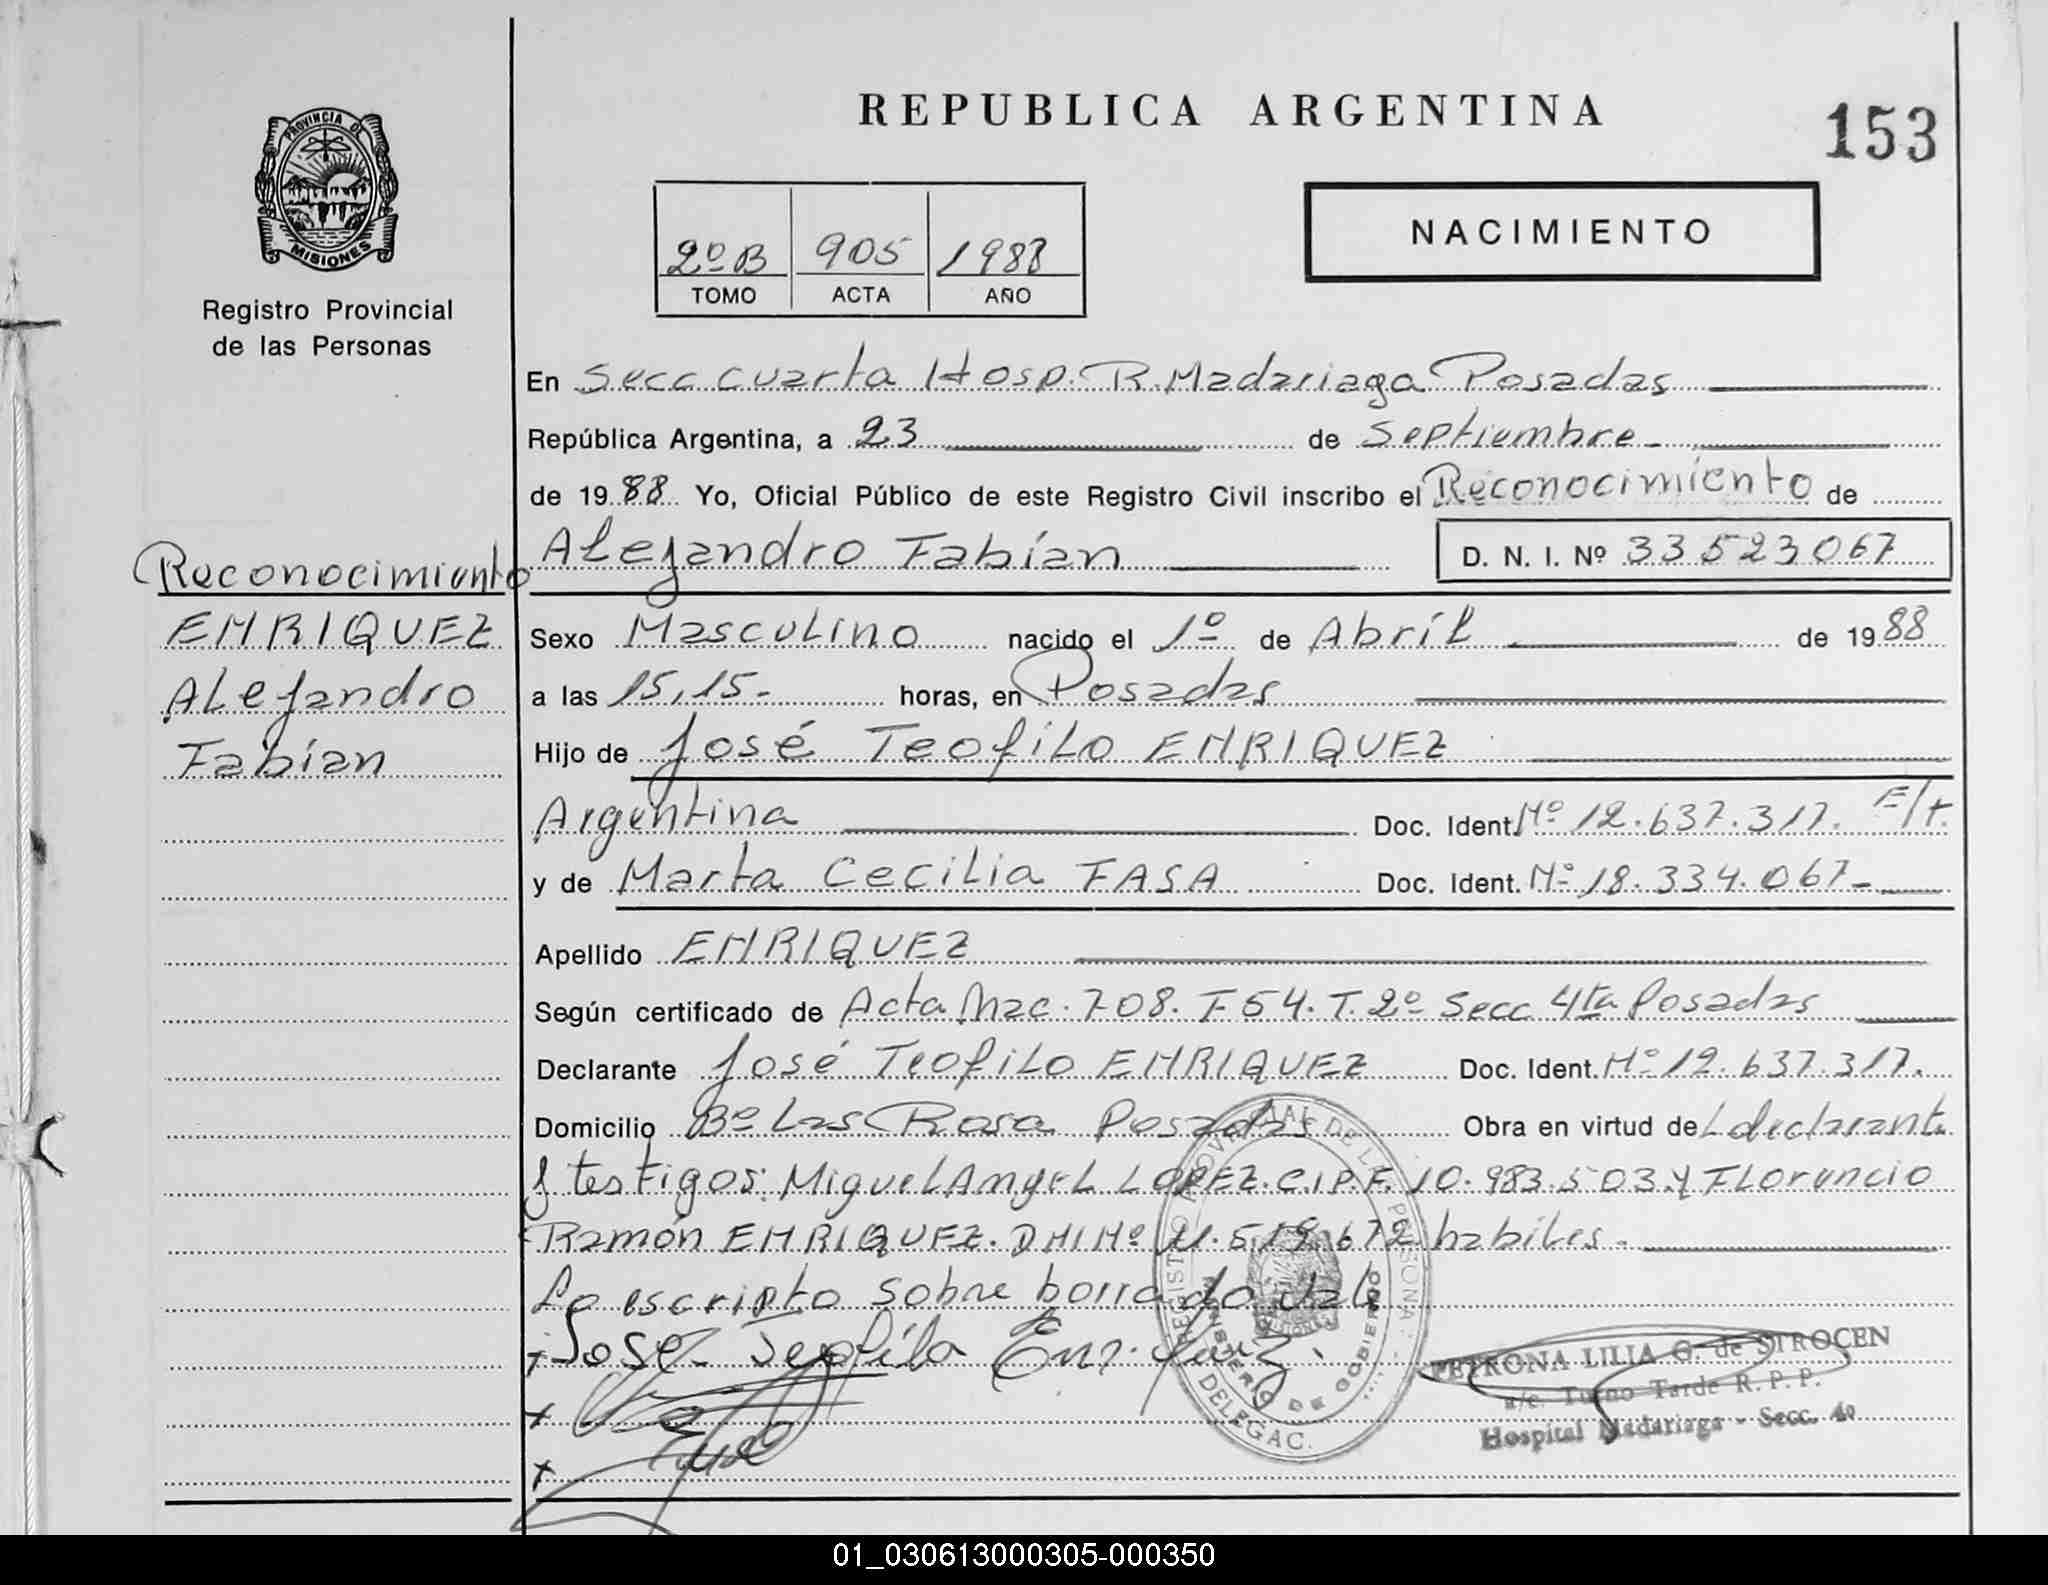 REPUBLICA ARGENTINA
153
PROVINCIA DE
MISIONES
Registro Provincial
de las Personas
2º B 905 1988
TOMO ACTA AÑO
NACIMIENTO
En Secc cuarta Hosp. R. Madariaga Posadas
República Argentina, a 23 de Septiembre
de 1988 Yo, Oficial Público de este Registro Civil inscribo el Reconocimiento de
Alejandro Fabían D. N. I. Nº 33523067
Reconocimiento
ENRIQUEZ
Alejandro
Fabían
Sexo Masculino nacido el 1º de Abríl de 1988
a las 15,15.- horas, en Posadas
Hijo de José Teofilo ENRIQUEZ
Argentina Doc. Ident. Nº 12.637.317. E/t.
y de Marta Cecilia FASA Doc. Ident. Nº 18.334.067-
Apellido ENRIQUEZ
Según certificado de Acta Nac. 708. F 54. T. 2º Secc 4ta Posadas
Declarante José Teofilo ENRIQUEZ Doc. Ident. Nº 12.637.317.
Domicilio Bº Las Rosa Posadas Obra en virtud de L declarante
y testigos: Miguel Angel LOPEZ. C.I.P.F. 10.983.503 y Florencio
Ramón ENRIQUEZ. DNI Nº 11.519.672 habiles.
Lo escripto sobre borrado vale
José Teofilo Enriquez
REGISTRO PROVINCIAL DE LAS PERSONAS
MINISTERIO DE GOBIERNO
MISIONES
DELEGAC.
PETRONA LILIA G. de STROCEN
a/c. Turno Tarde R. P. P.
Hospital Madariaga - Secc. 4º
01_030613000305-000350